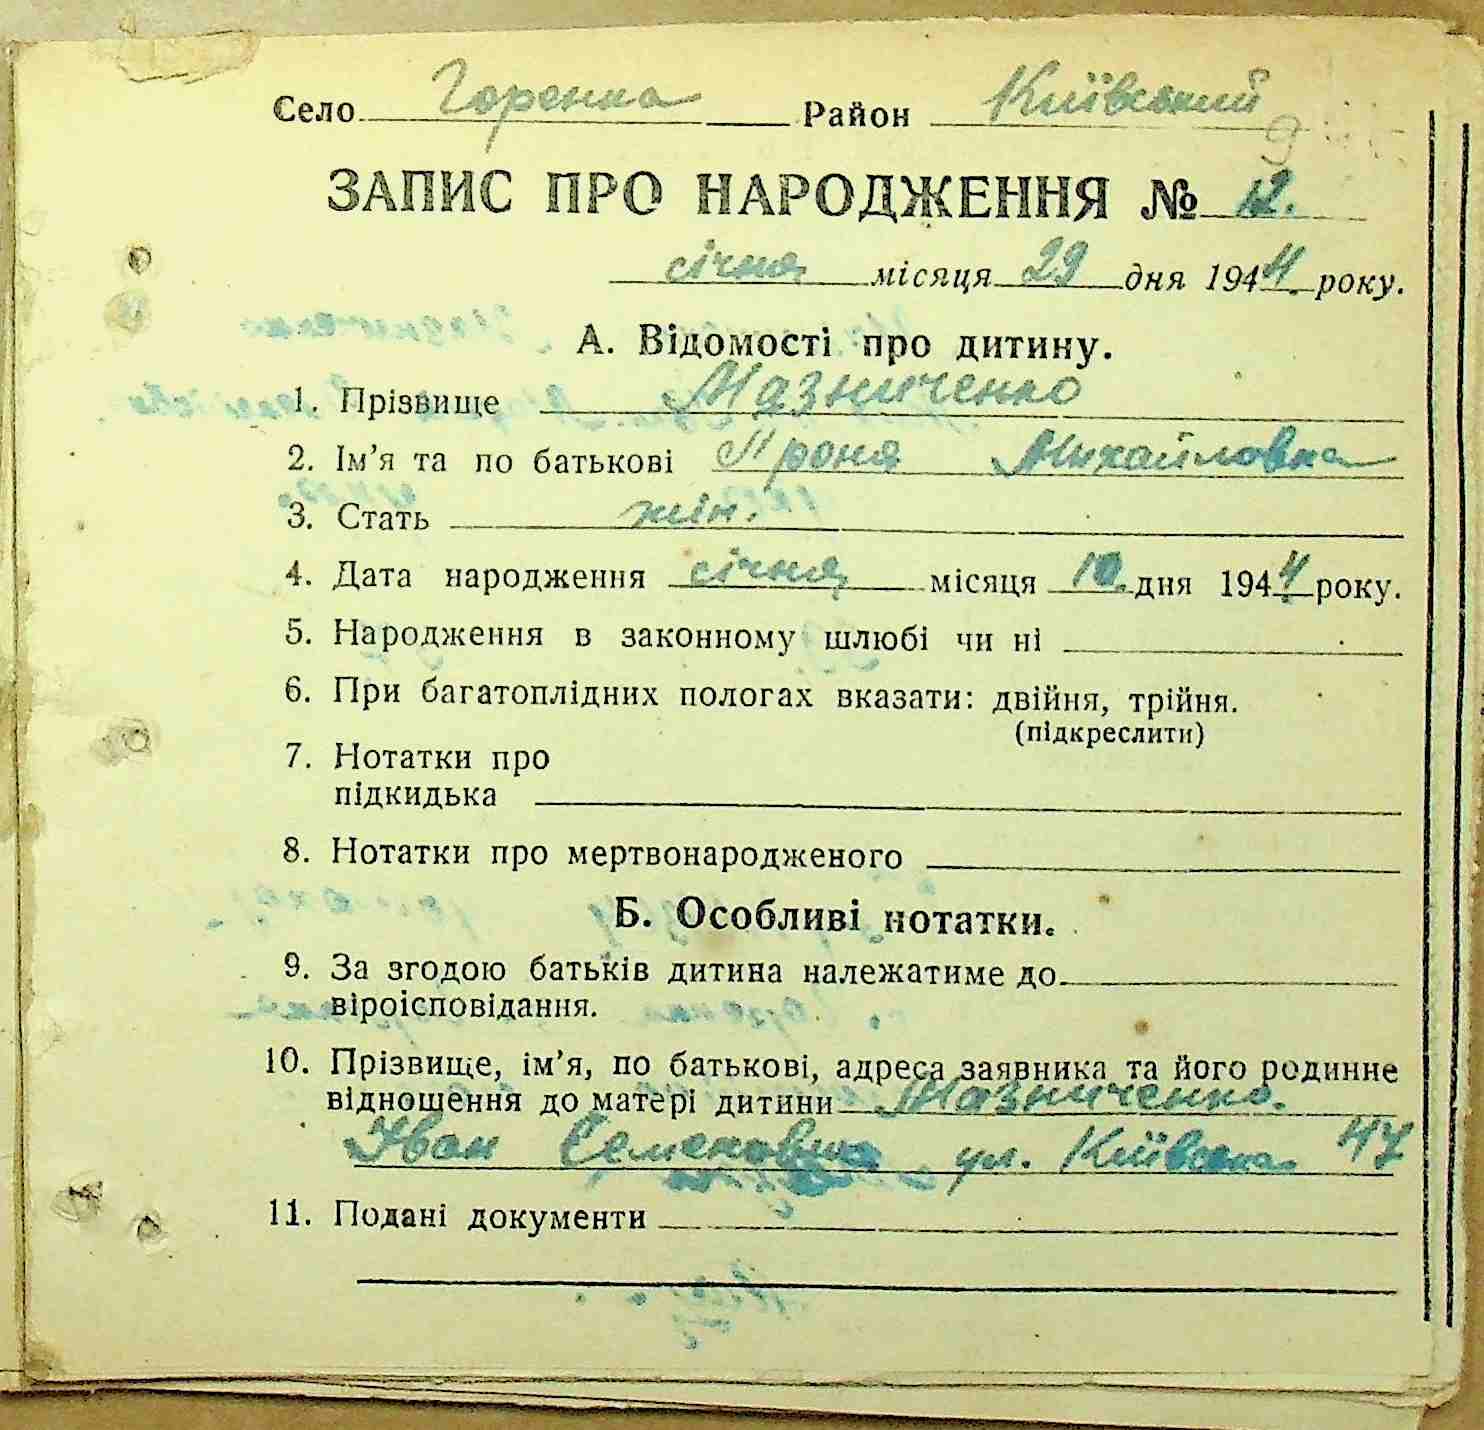 Село Горенка Район Київський
9
ЗАПИС ПРО НАРОДЖЕННЯ № 12.
січня місяця 29 дня 1944. року.
А. Відомості про дитину.
1. Прізвище Мазниченко
2. Ім'я та по батькові Проня Михайловна
3. Стать жін.
4. Дата народження січня місяця 10. дня 1944 року.
5. Народження в законному шлюбі чи ні
6. При багатоплідних пологах вказати: двійня, трійня.
(підкреслити)
7. Нотатки про
підкидька
8. Нотатки про мертвонародженого
Б. Особливі нотатки.
9. За згодою батьків дитина належатиме до
віроісповідання.
10. Прізвище, ім'я, по батькові, адреса заявника та його родинне
відношення до матері дитини Мазниченко.
Іван Семенович ул. Київська 47
11. Подані документи